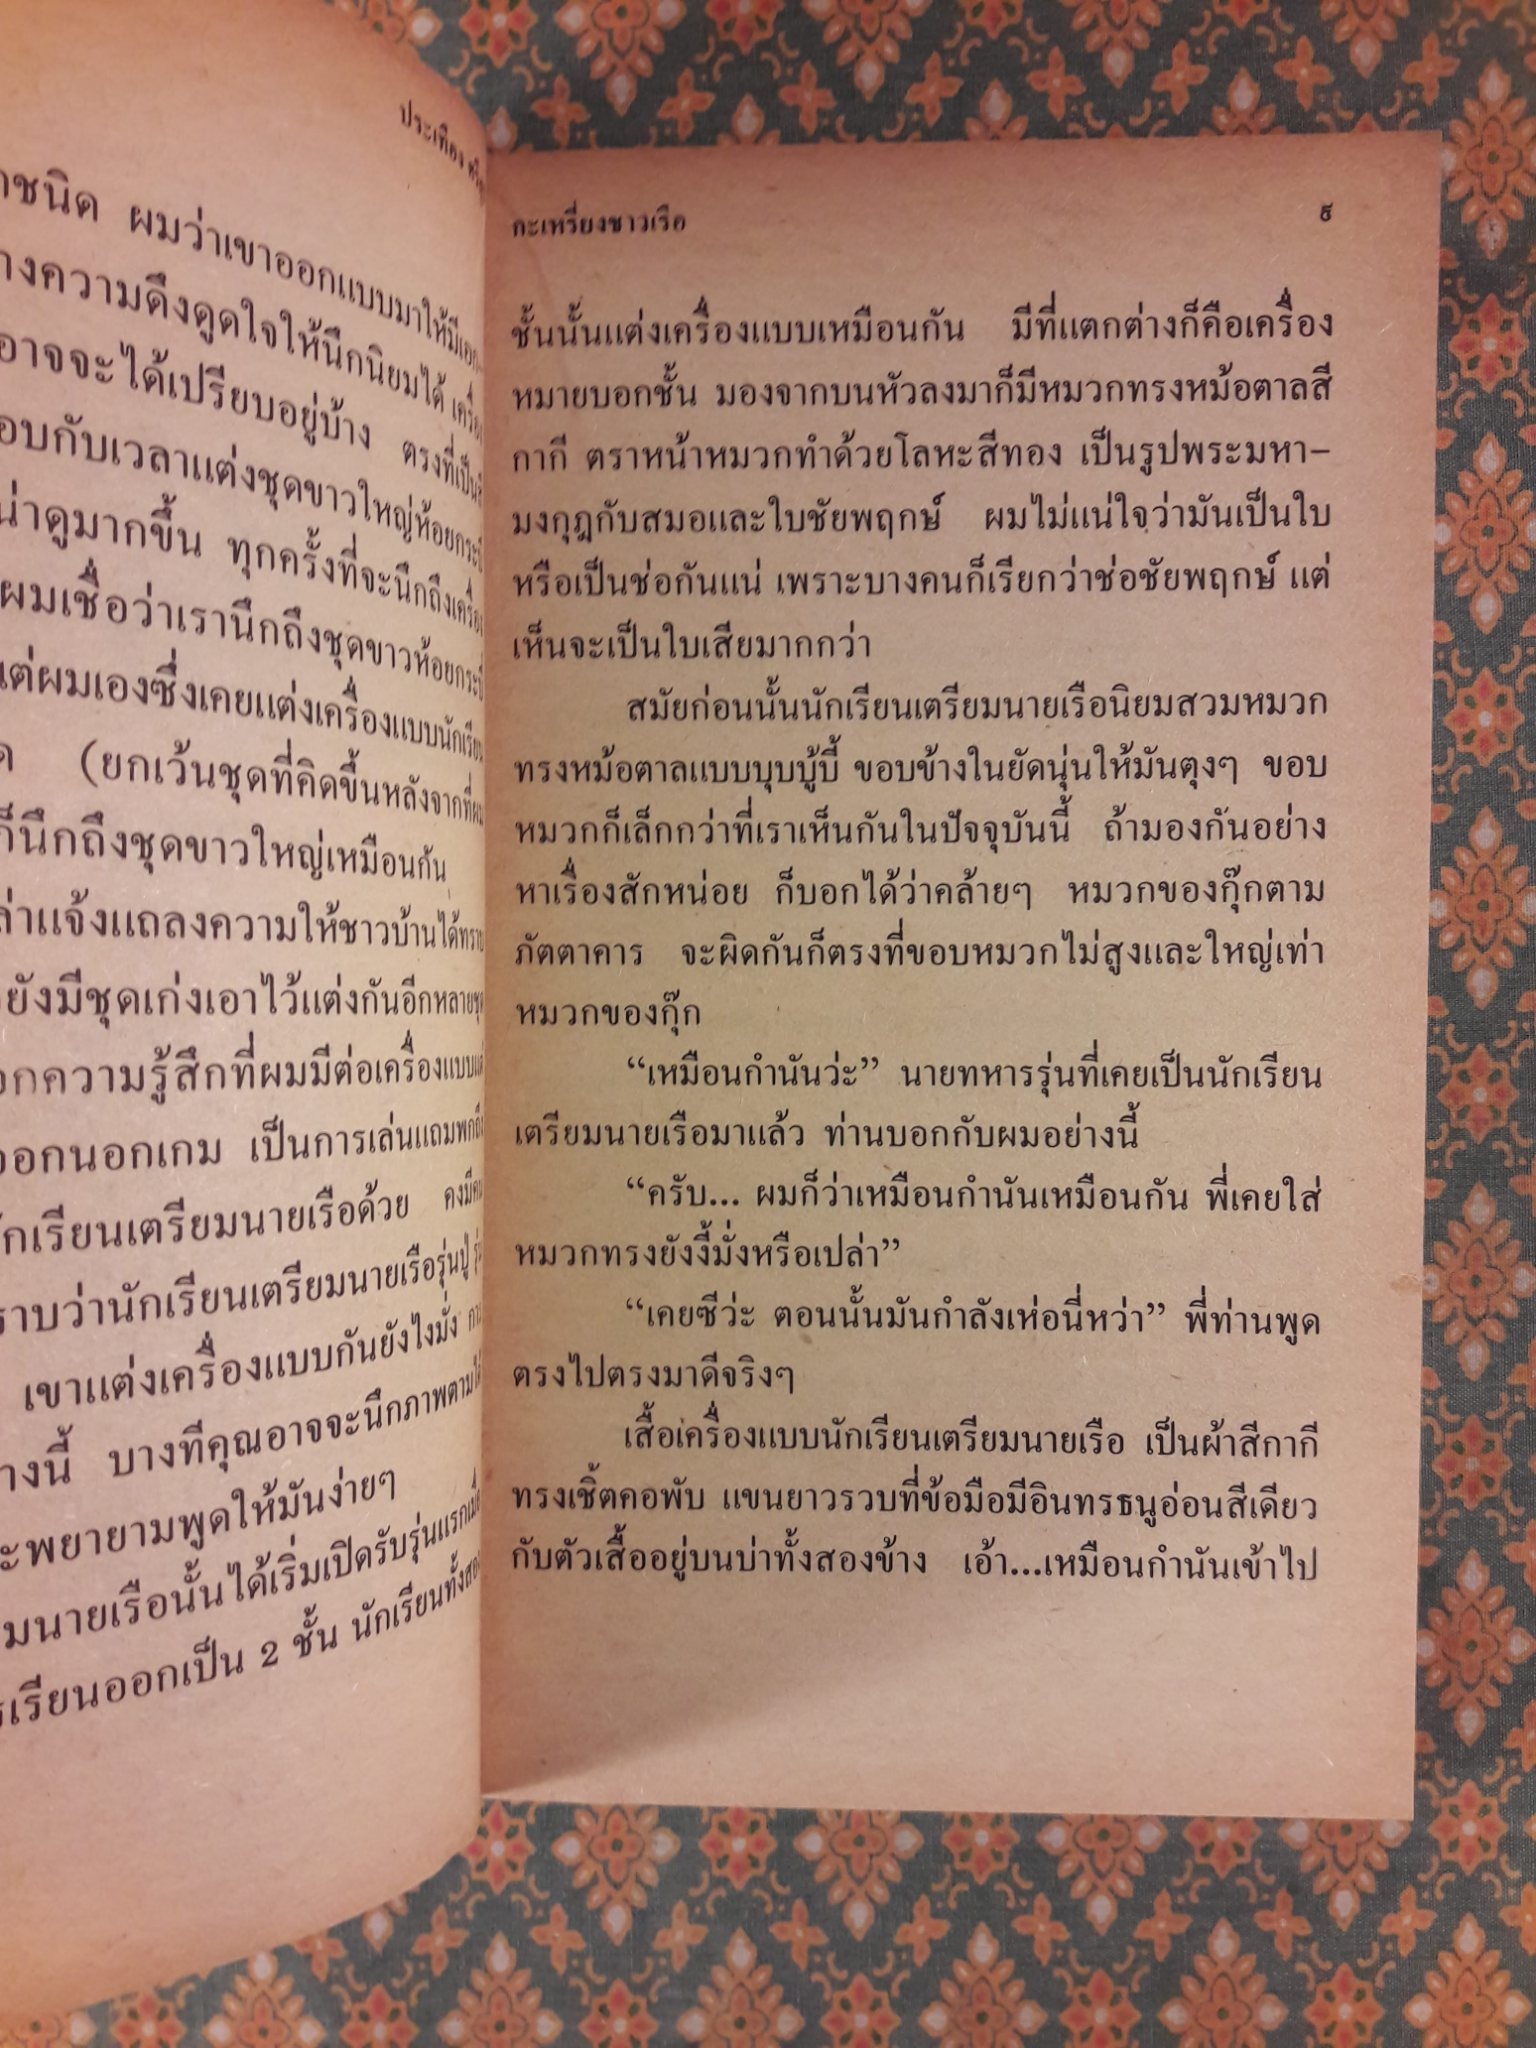 ประเทือง
กชนิด ผมว่าเขาออกแบบมาให้มีเอก
างความดึงดูดใจให้นึกนิยมได้ เครื่อ
อาจจะได้เปรียบอยู่บ้าง ตรงที่เป็น
อบกับเวลาแต่งชุดขาวใหญ่ห้อยกระบี่
น่าดูมากขึ้น ทุกครั้งที่จะนึกถึงเครื่อง
ผมเชื่อว่าเรานึกถึงชุดขาวห้อยกระบี่
แต่ผมเองซึ่งเคยแต่งเครื่องแบบนักเรียน
ด (ยกเว้นชุดที่คิดขึ้นหลังจากที่ผม
ก็นึกถึงชุดขาวใหญ่เหมือนกัน
ล่าแจ้งแถลงความให้ชาวบ้านได้ทราบ
ยังมีชุดเก่งเอาไว้แต่งกันอีกหลายชุด
อกความรู้สึกที่ผมมีต่อเครื่องแบบแล้
ออกนอกเกม เป็นการเล่นแถมพกถึง
นักเรียนเตรียมนายเรือด้วย คงมีคน
ราบว่านักเรียนเตรียมนายเรือรุ่นปู่ รุ่น
เขาแต่งเครื่องแบบกันยังไงมั่ง
างนี้ บางทีคุณอาจจะนึกภาพตามได้
ะพยายามพูดให้มันง่ายๆ
มนายเรือนั้นได้เริ่มเปิดรับรุ่นแรกเมื่อ
รเรียนออกเป็น 2 ชั้น นักเรียนทั้งสอง
กะเหรี่ยงชาวเรือ ๕
ชั้นนั้นแต่งเครื่องแบบเหมือนกัน มีที่แตกต่างก็คือเครื่อง
หมายบอกชั้น มองจากบนหัวลงมาก็มีหมวกทรงหม้อตาลสี
กากี ตราหน้าหมวกทำด้วยโลหะสีทอง เป็นรูปพระมหา-
มงกุฎกับสมอและใบชัยพฤกษ์ ผมไม่แน่ใจว่ามันเป็นใบ
หรือเป็นช่อกันแน่ เพราะบางคนก็เรียกว่าช่อชัยพฤกษ์ แต่
เห็นจะเป็นใบเสียมากกว่า
สมัยก่อนนั้นนักเรียนเตรียมนายเรือนิยมสวมหมวก
ทรงหม้อตาลแบบบุบบู้บี้ ขอบข้างในยัดนุ่นให้มันตุงๆ ขอบ
หมวกก็เล็กกว่าที่เราเห็นกันในปัจจุบันนี้ ถ้ามองกันอย่าง
หาเรื่องสักหน่อย ก็บอกได้ว่าคล้ายๆ หมวกของกุ๊กตาม
ภัตตาคาร จะผิดกันก็ตรงที่ขอบหมวกไม่สูงและใหญ่เท่า
หมวกของกุ๊ก
“เหมือนกำนันว่ะ” นายทหารรุ่นที่เคยเป็นนักเรียน
เตรียมนายเรือมาแล้ว ท่านบอกกับผมอย่างนี้
“ครับ... ผมก็ว่าเหมือนกำนันเหมือนกัน พี่เคยใส่
หมวกทรงยังงี้มั่งหรือเปล่า”
“เคยซีว่ะ ตอนนั้นมันกำลังเห่อนี่หว่า” พี่ท่านพูด
ตรงไปตรงมาดีจริงๆ
เสื้อเครื่องแบบนักเรียนเตรียมนายเรือ เป็นผ้าสีกากี
ทรงเชิ้ตคอพับ แขนยาวรวบที่ข้อมือมีอินทรธนูอ่อนสีเดียว
กับตัวเสื้ออยู่บนบ่าทั้งสองข้าง เอ้า...เหมือนกำนันเข้าไป